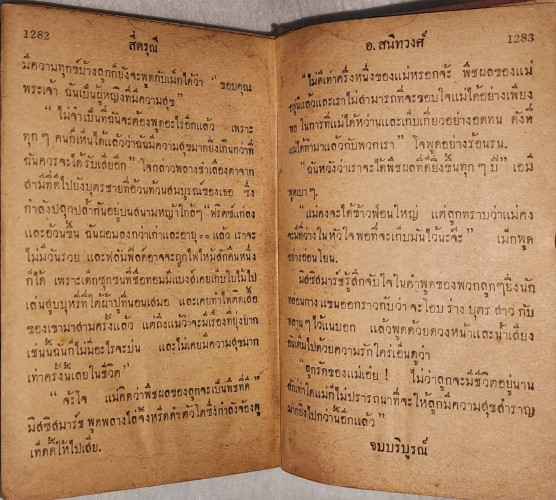 1282
สี่ดรุณี
มีความทุกข์บ้างลูกก็ยังจะพูดกับเม็กได้ว่า “ ขอบคุณ
พระเจ้า ฉันเป็นผู้หญิงที่มีความสุข”
“ไม่จำเป็นที่ฉันจะต้องพูดอะไรอีกแล้ว เพราะ
ทุกๆ คนก็เห็นได้แล้วว่าฉันมีความสุขมากยิ่งเกินกว่าที่
ฉันควรจะได้รับเสียอีก” โจกล่าวพลางชำเลืองตาจาก
สามีที่ดีไปยังบุตรชายที่อ้วนท้วนสมบูรณ์ของเธอ ซึ่ง
กำลังปลุกปล้ำกันอยู่บนสนามหญ้าใกล้ๆ “ฟริตซ์แก่ลง
และอ้วนขึ้น ฉันผอมลงกว่าเก่าและอายุ ๓๐ แล้ว เราจะ
ไม่มีวันรวย และพลัมฟิลด์อาจจะถูกไฟไหม้สักคืนหนึ่ง
ก็ได้ เพราะเด็กซุกซนที่ชื่อทอมมี่แบงส์เคยเก็บใบไม้ไป
เล่นสูบบุหรี่ที่ใต้ผ้าปูที่นอนเสมอ และเคยทำไฟติดเสื้อ
ของเขามาสามครั้งแล้ว แต่ถึงแม้ว่าจะมีเรื่องที่ยุ่งยาก
เช่นนั้นฉันก็ไม่มีอะไรจะบ่น และไม่เคยมีความสุขมาก
เท่าครั้งนี้เลยในชีวิต”
“จ้ะโจ แม่คิดว่าพืชผลของลูกจะเป็นพืชที่ดี”
มิสซิสมาร์ช พูดพลางไล่จิ้งหรีดดำตัวโตซึ่งกำลังจ้องดู
เท็ดดี้ให้ไปเสีย.
อ. สนิทวงศ์
1283
“ไม่ดีเท่าครึ่งหนึ่งของแม่หรอกจ้ะ พืชผลของแม่
อยู่นี่แล้วและเราไม่สามารถที่จะขอบใจแม่ได้อย่างเพียง
พอ ในการที่แม่ได้หว่านและเก็บเกี่ยวอย่างอดทน ดังที่
แม่ได้ทำมาแล้วกับพวกเรา” โจพูดอย่างร้อนรน.
“ฉันหวังว่าเราจะได้พืชผลที่ดียิ่งขึ้นทุกๆ ปี” เอมี่
พูดเบาๆ.
“แม่คงจะได้ข้าวฟ่อนใหญ่ แต่ลูกทราบว่าแม่คง
จะมีที่ว่างในหัวใจพอที่จะเก็บมันไว้นะจ๊ะ” เม็กพูด
อย่างอ่อนโยน.
มิสซิสมาร์ชรู้สึกจับใจในคำพูดของพวกลูกๆยิ่งนัก
หล่อนกางแขนออกราวกับว่า จะโอบร่างบุตรสาวกับ
หลานๆไว้แนบอก แล้วพูดด้วยดวงหน้าและน้ำเสียง
อันเต็มไปด้วยความรักใคร่เอ็นดูว่า
“ลูกรักของแม่เอ๋ย ! ไม่ว่าลูกจะมีชีวิตอยู่นาน
สักเท่าใดแม่ก็ไม่ปรารถนาที่จะให้ลูกมีความสุขสำราญ
มากยิ่งไปกว่านี้อีกแล้ว”
จบบริบูรณ์